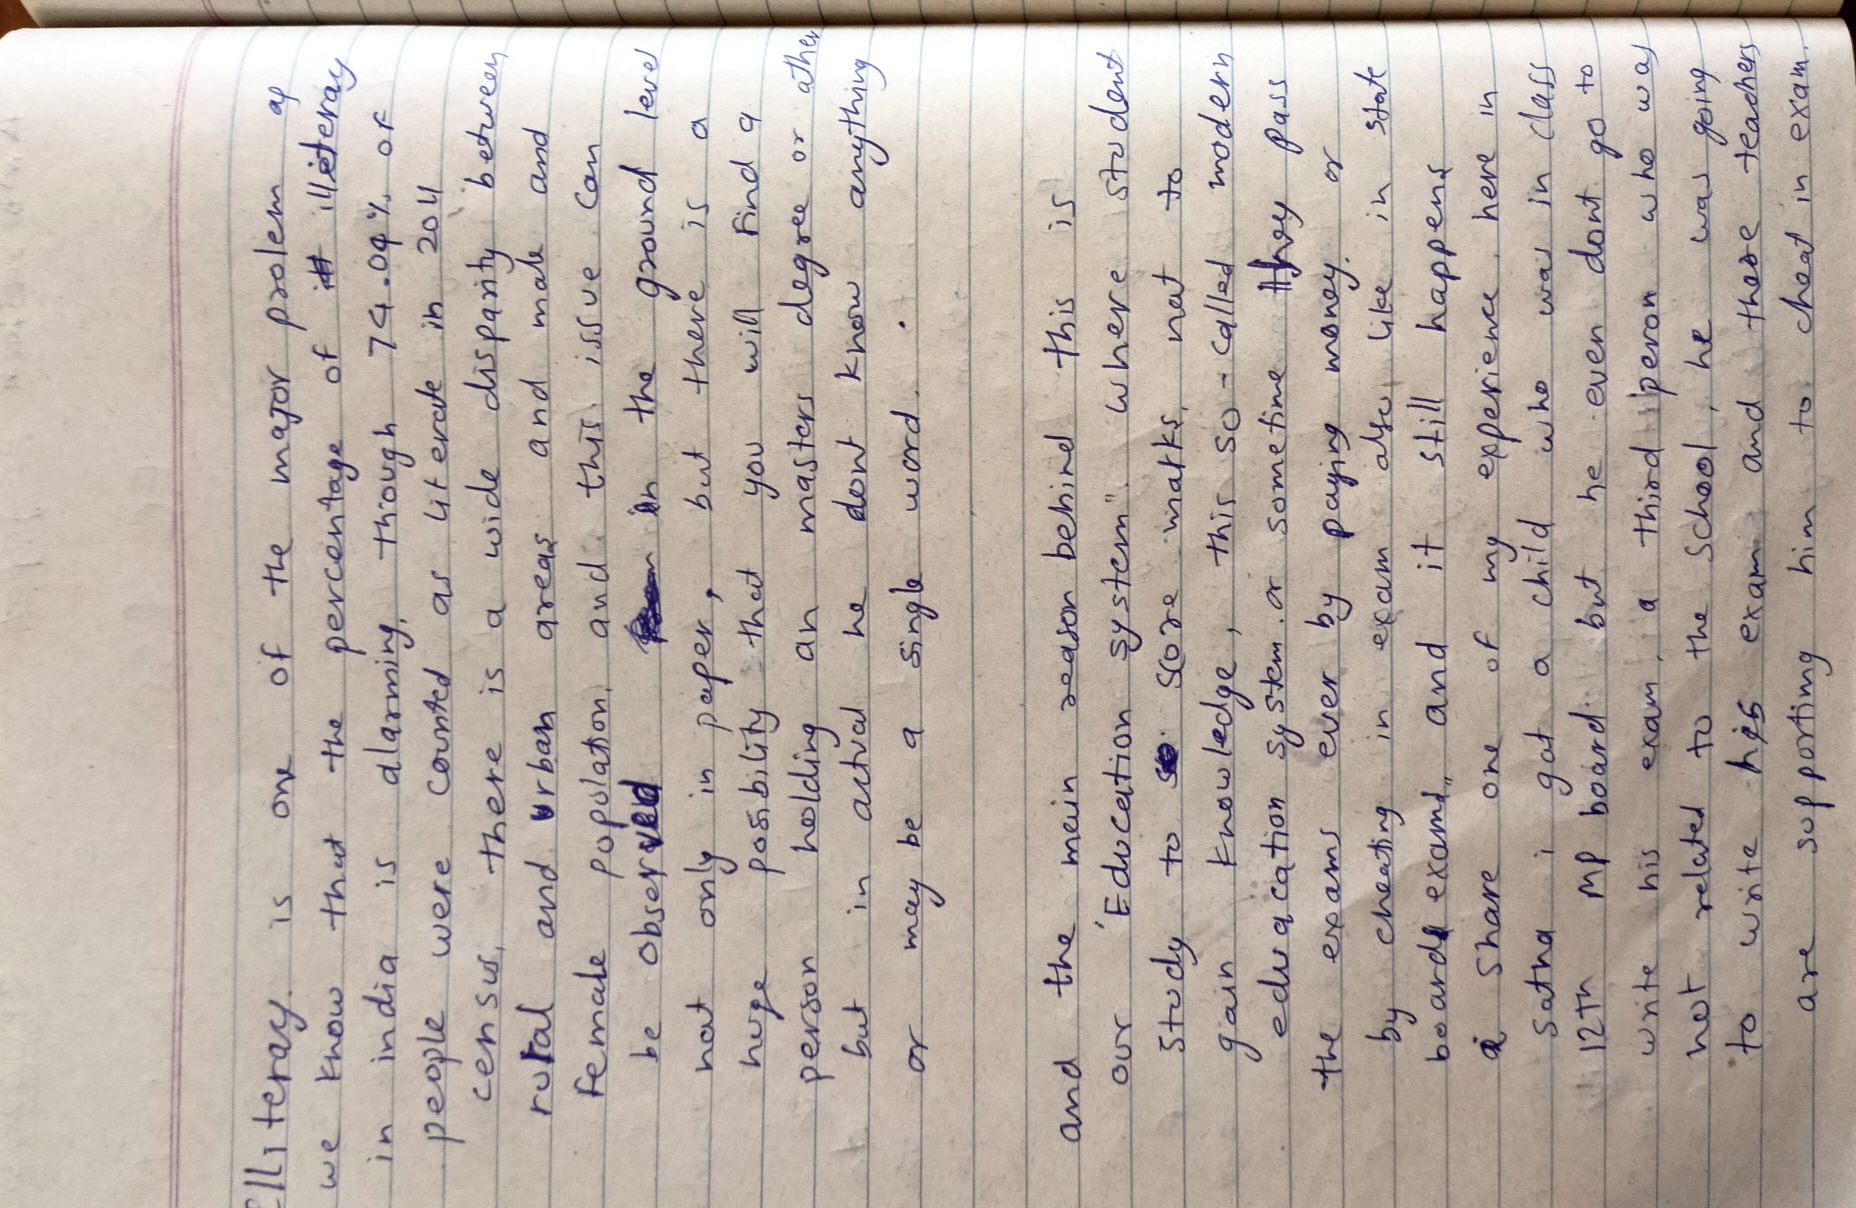 Elliteray is one of the major prolem as
we know that the percentage of illeteray
in india is alarming, though 74.04% of
people were counted as literate in 2011
census, there is a wide disparity between
rural and urban areas and male and
Female population, and this issue can
be observed in the ground level
not only in paper, but there is a
huge possibility that you will find a
person holding an masters degree or other
but in actual he dont know anything
or may be a single word.
and the mein reason behind this is
our "Education system" where student
study to score marks, not to
gain knowledge, this so-called modern
education system. or sometime they pass
the exams ever by paying money. or
by cheating in exam also like in state
boards exams, and it still happens
i share one of my experience here in
Satna i got a child who was in class
12Th MP board but he even dont go to
write his exam, a third peron who was
not related to the school, he was going
to write his exam and there teachers
are supporting him to cheat in exam.